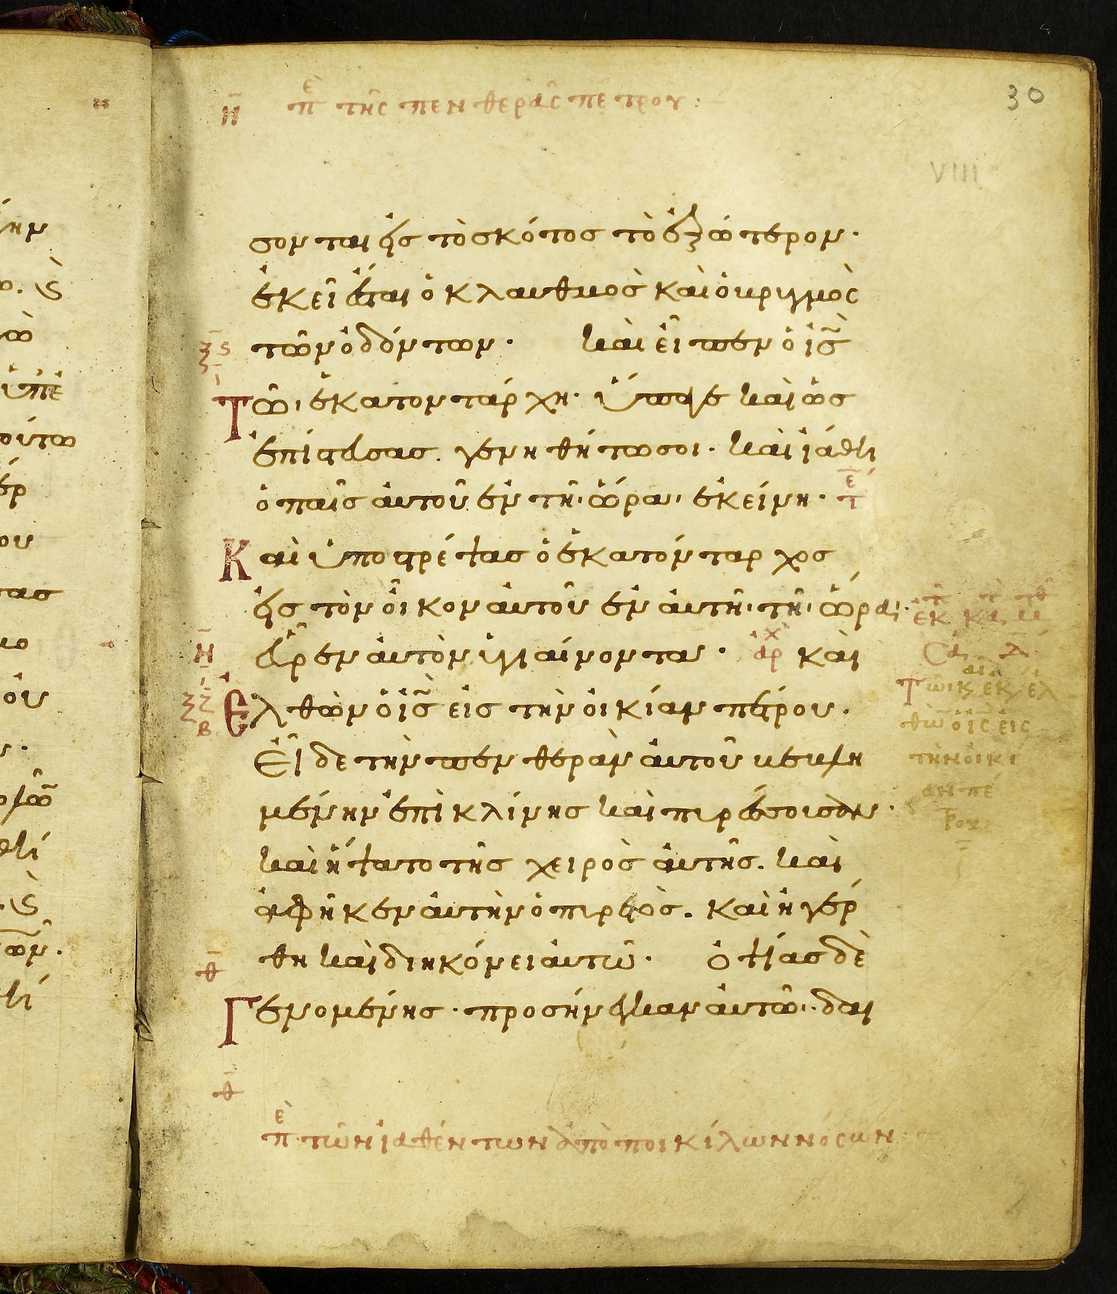 30
Η περὶ τῆς πενθερᾶς πέτρου:
VIII
σονται εἰς τὸ σκότος τὸ ἐξώτερον·
ἐκεῖ ἔσται ὁ κλαυθμὸς καὶ ὁ βριγμὸς
τῶν ὀδόντων· καὶ εἶπεν ὁ ις
Τῶ ἑκατοντάρχη· ὕπαγε καὶ ὡς
ἐπίστευσας. γενηθήτω σοι· καὶ ἰάθη
ὁ παῖς αὐτοῦ ἐν τῆ ὥρα ἐκείνη·
Καὶ ὑποστρέψας ὁ ἑκατόνταρχος
εἰς τὸν οἶκον αὐτοῦ ἐν αὐτῆ τῆ ὥρα·
εὗρεν αὐτὸν ὑγιαίνοντα· καὶ
Ἐλθὼν ὁ ις εἰς τὴν οἰκίαν πέτρου.
εἶδε τὴν πενθερὰν αὐτοῦ βεβλη
μένην ἐπὶ κλίνης καὶ πυρέσσουσαν·
καὶ ἥψατο τῆς χειρὸς αὐτῆς. καὶ
ἀφῆκεν αὐτὴν ὁ πυρετὸς. καὶ ἠγέρ
θη καὶ διηκόνει αὐτῶ· Ὀψίας δὲ
Γενομένης· προσήνεγκαν αὐτῶ· δαι
τὴν οἰκί
αν πέ
τρου
Θ
περὶ τῶν ἰαθέντων ἀπὸ ποικίλων νόσων